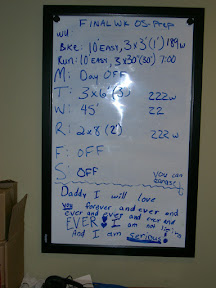 FINAL WK OS-Prep
Bike: 10' EASY, 3x3'(1') 189w
Run: 10' EASY, 3x30"(30") 7:00
M: Day OFF
T: 3x6'(3) 222w
W: 45' 22
R: 2x8'(2') 222w
F: OFF
S: OFF
you can
erase
Daddy I will love
you forever and ever and
ever and ever and ever and
EVER! I am not lieing
And I am serious!